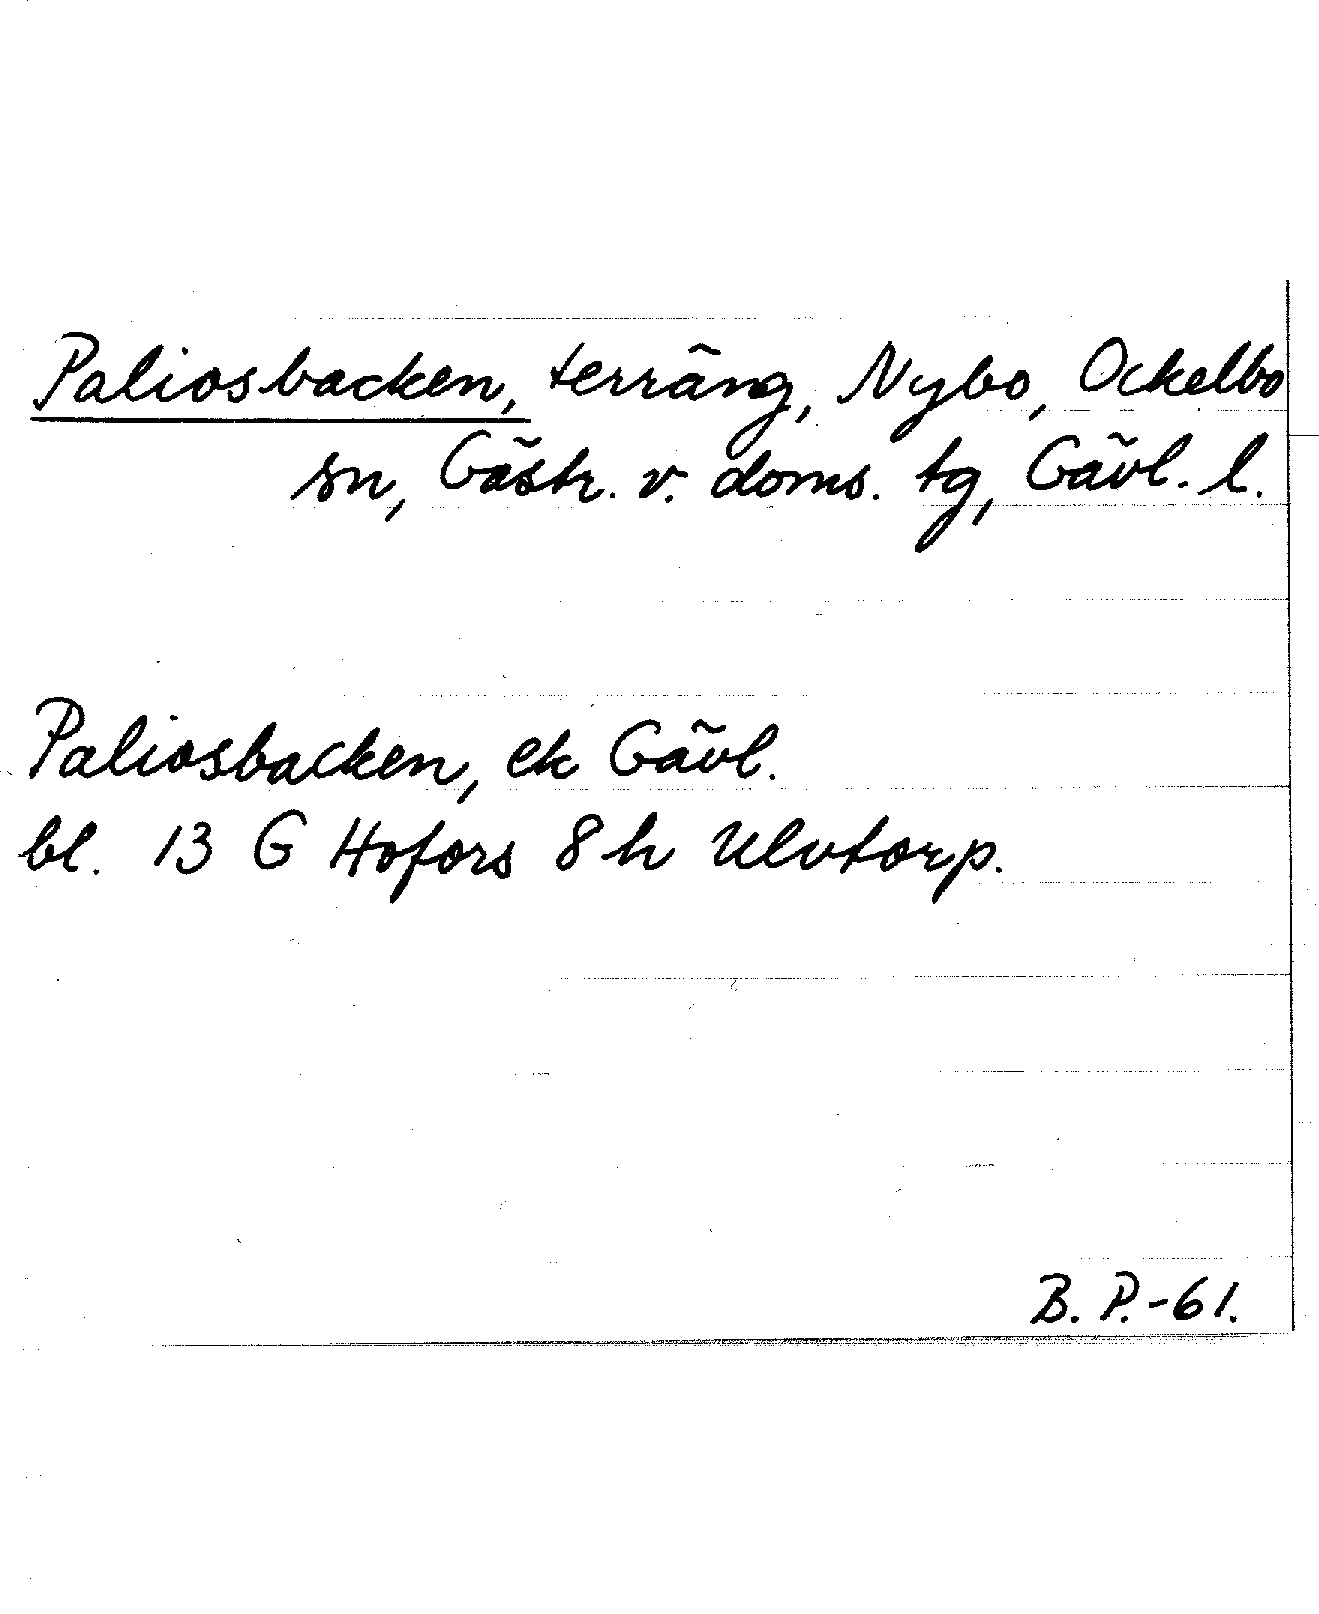 Paliosbacken, terräng, Nybo, Ockelbo
sn, Gästr. v. doms. tg, Gävl. l.
Paliosbacken, ek Gävl.
bl. 13 G Hofors 8 h Ulvtorp.
B. P.-61.